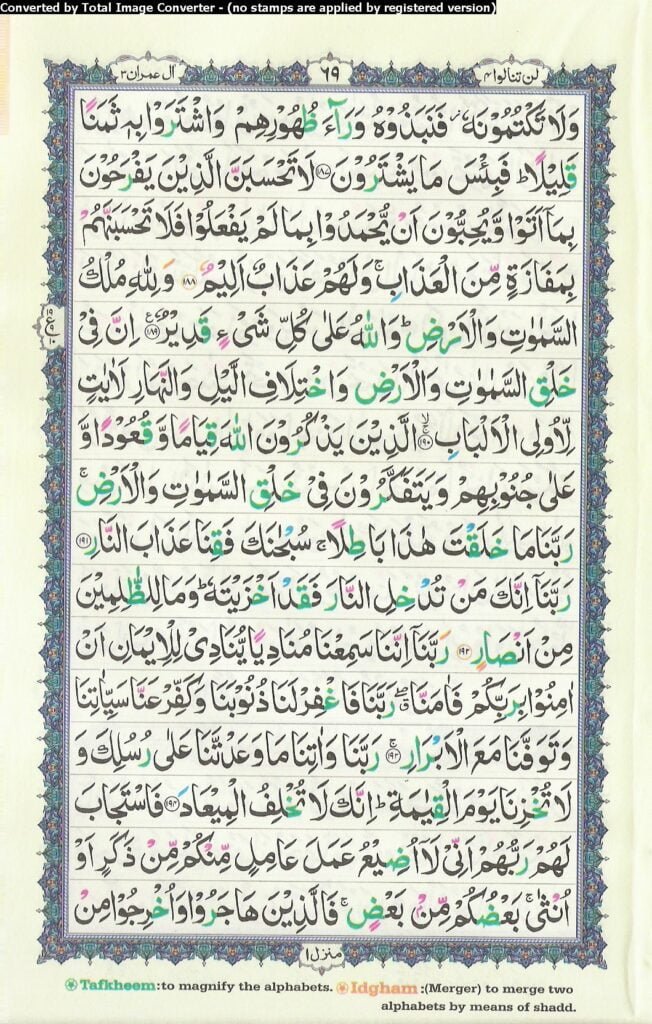 Converted by Total Image Converter - (no stamps are applied by registered version)
لن تنالوا ۴
٦٩
اٰل عمران ۳
وَلَا تَكْتُمُوْنَهٗ فَنَبَذُوْهُ وَرَآءَ ظُهُوْرِهِمْ وَاشْتَرَوْا بِهٖ ثَمَنًا
قَلِيْلًا ؕ فَبِئْسَ مَا يَشْتَرُوْنَ ﴿۱۸۷﴾ لَا تَحْسَبَنَّ الَّذِيْنَ يَفْرَحُوْنَ
بِمَاۤ اَتَوْا وَّيُحِبُّوْنَ اَنْ يُّحْمَدُوْا بِمَا لَمْ يَفْعَلُوْا فَلَا تَحْسَبَنَّهُمْ
بِمَفَازَةٍ مِّنَ الْعَذَابِ ۚ وَلَهُمْ عَذَابٌ اَلِيْمٌ ﴿۱۸۸﴾ وَلِلّٰهِ مُلْكُ
السَّمٰوٰتِ وَالْاَرْضِ ؕ وَاللّٰهُ عَلٰى كُلِّ شَىْءٍ قَدِيْرٌ ﴿۱۸۹﴾ اِنَّ فِىْ
خَلْقِ السَّمٰوٰتِ وَالْاَرْضِ وَاخْتِلَافِ الَّيْلِ وَالنَّهَارِ لَاٰيٰتٍ
لِّاُولِى الْاَلْبَابِ ﴿۱۹۰﴾ الَّذِيْنَ يَذْكُرُوْنَ اللّٰهَ قِيَامًا وَّقُعُوْدًا وَّ
عَلٰى جُنُوْبِهِمْ وَيَتَفَكَّرُوْنَ فِىْ خَلْقِ السَّمٰوٰتِ وَالْاَرْضِ ۚ
رَبَّنَا مَا خَلَقْتَ هٰذَا بَاطِلًا ۚ سُبْحٰنَكَ فَقِنَا عَذَابَ النَّارِ ﴿۱۹۱﴾
رَبَّنَاۤ اِنَّكَ مَنْ تُدْخِلِ النَّارَ فَقَدْ اَخْزَيْتَهٗ ؕ وَمَا لِلظّٰلِمِيْنَ
مِنْ اَنْصَارٍ ﴿۱۹۲﴾ رَبَّنَاۤ اِنَّنَا سَمِعْنَا مُنَادِيًا يُّنَادِىْ لِلْاِيْمَانِ اَنْ
اٰمِنُوْا بِرَبِّكُمْ فَاٰمَنَّا ۖ رَبَّنَا فَاغْفِرْ لَنَا ذُنُوْبَنَا وَكَفِّرْ عَنَّا سَيِّاٰتِنَا
وَتَوَفَّنَا مَعَ الْاَبْرَارِ ﴿۱۹۳﴾ رَبَّنَا وَاٰتِنَا مَا وَعَدْتَّنَا عَلٰى رُسُلِكَ وَ
لَا تُخْزِنَا يَوْمَ الْقِيٰمَةِ ؕ اِنَّكَ لَا تُخْلِفُ الْمِيْعَادَ ﴿۱۹۴﴾ فَاسْتَجَابَ
لَهُمْ رَبُّهُمْ اَنِّىْ لَاۤ اُضِيْعُ عَمَلَ عَامِلٍ مِّنْكُمْ مِّنْ ذَكَرٍ اَوْ
اُنْثٰى ۚ بَعْضُكُمْ مِّنْ بَعْضٍ ۚ فَالَّذِيْنَ هَاجَرُوْا وَاُخْرِجُوْا مِنْ
منزل ۱
Tafkheem:to magnify the alphabets. Idgham :(Merger) to merge two
alphabets by means of shadd.